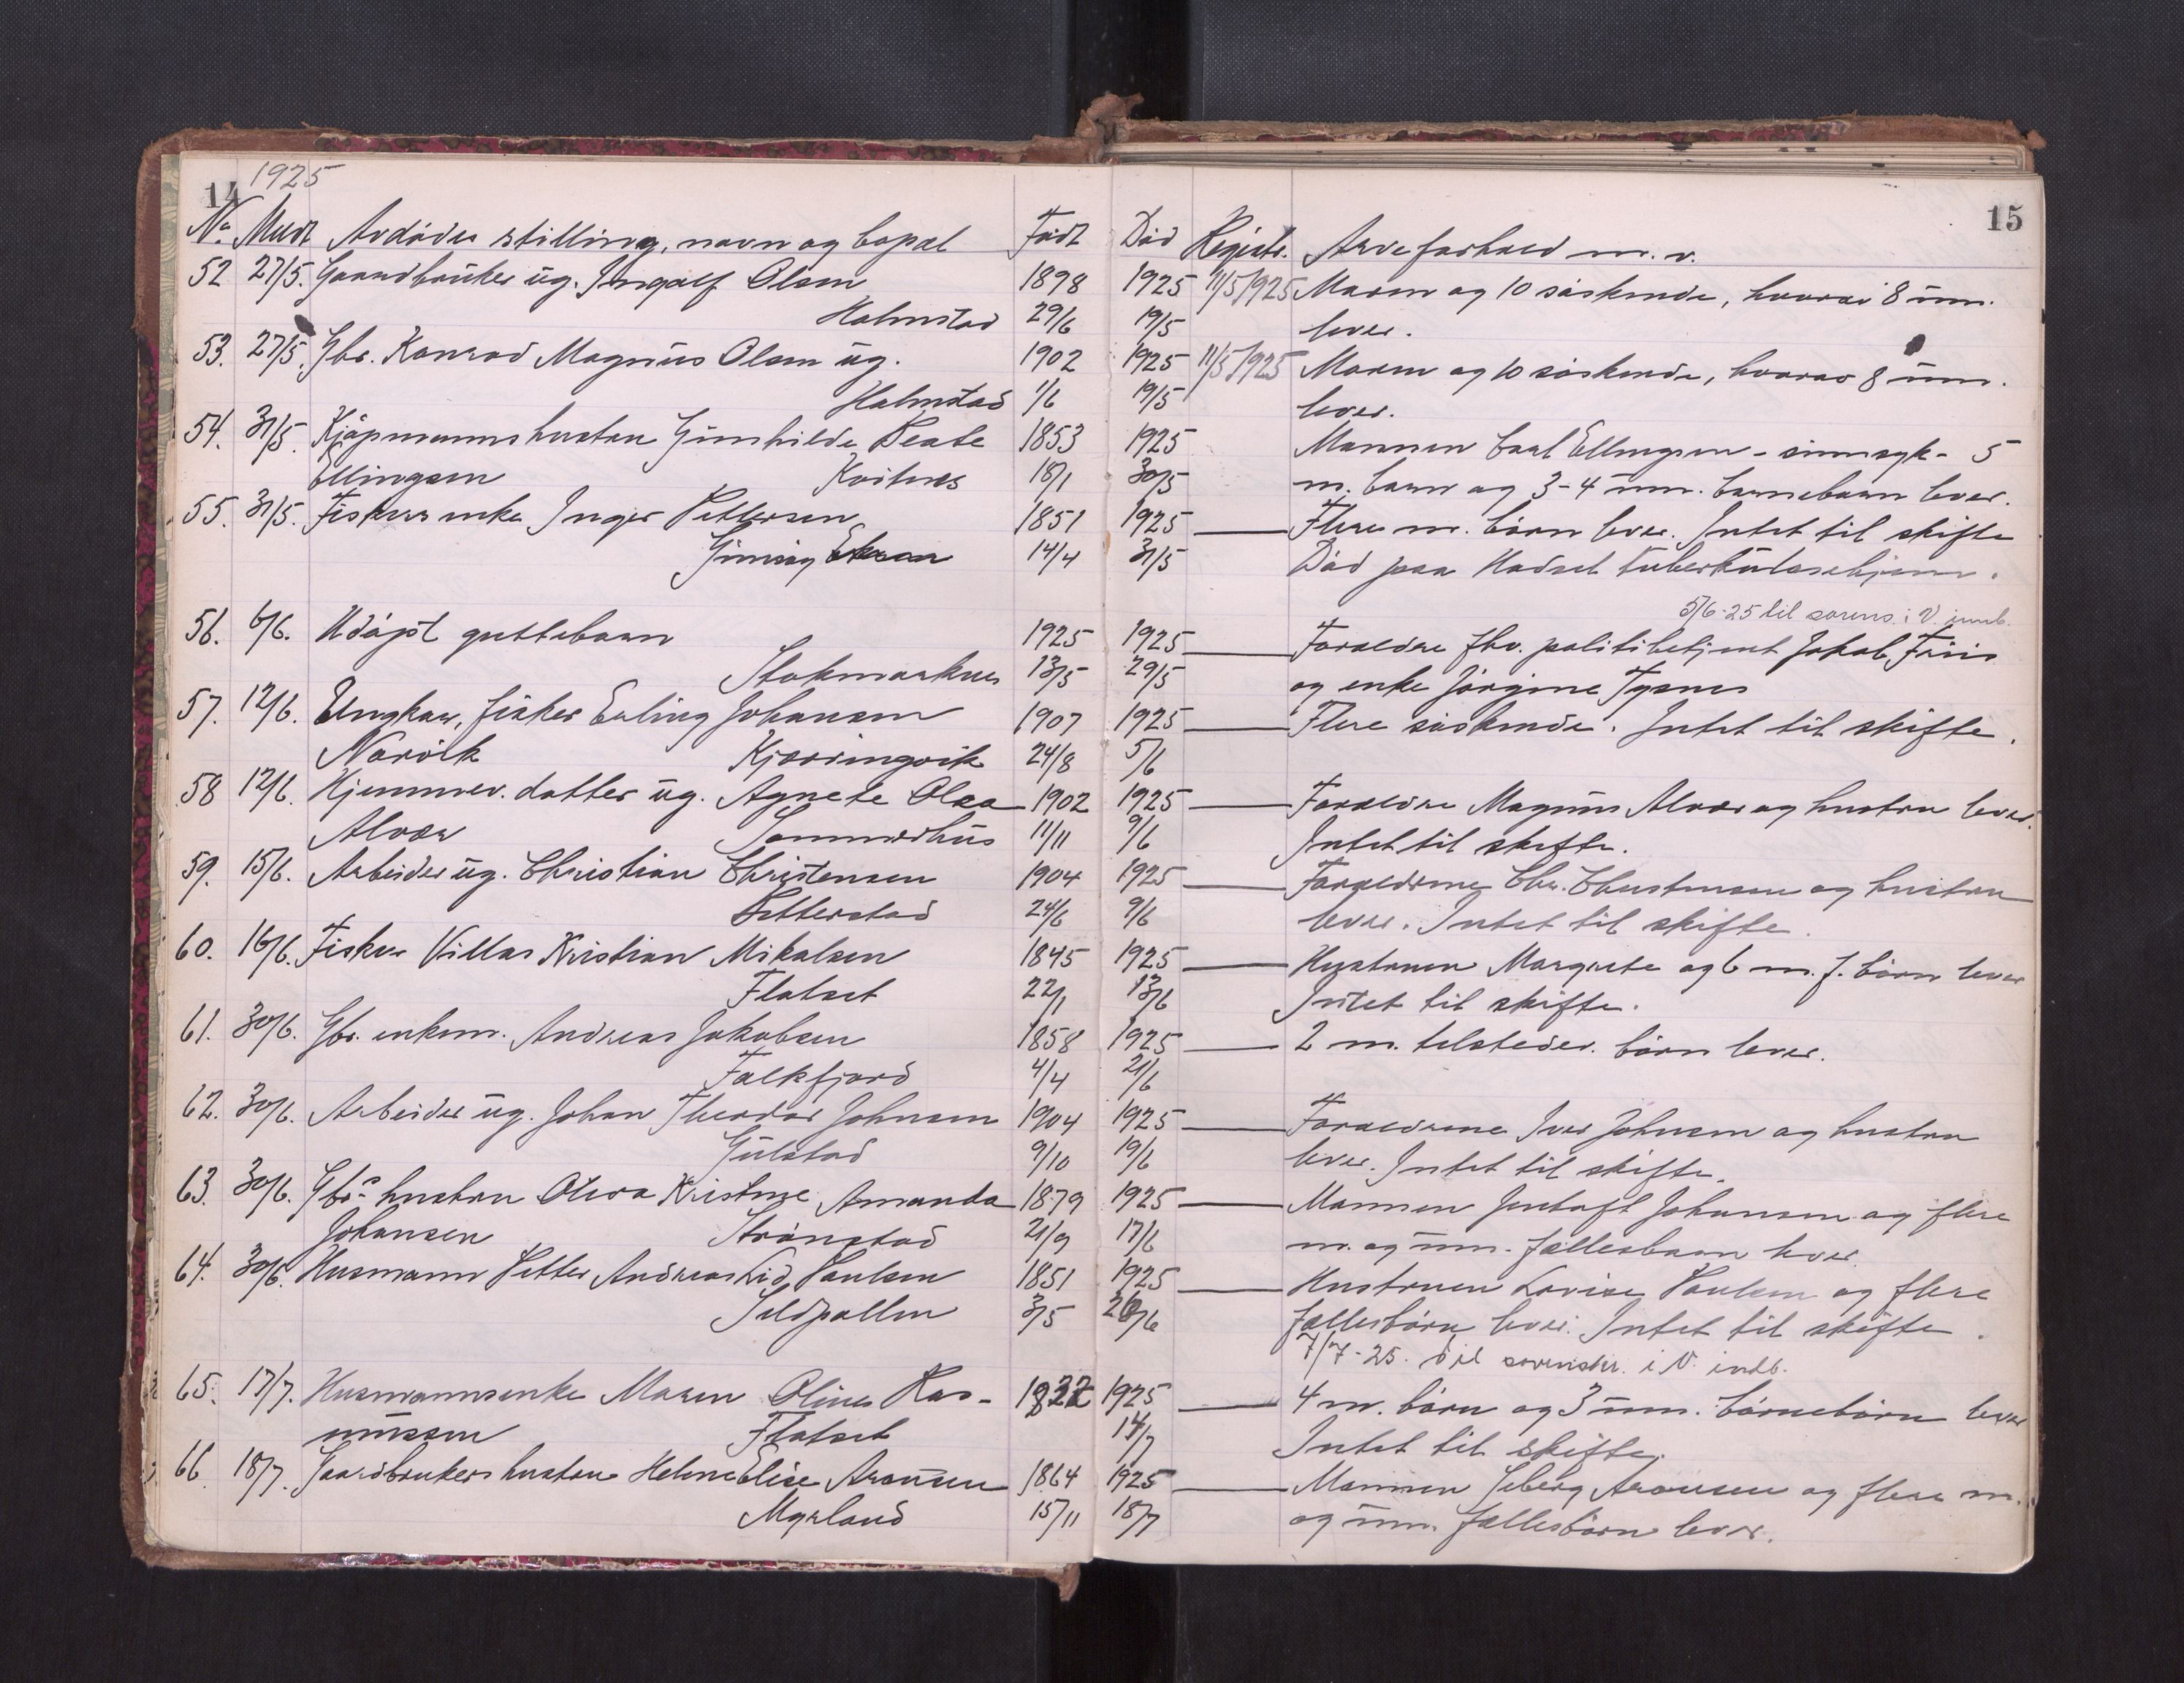 14 1925
No. Meldt Avdödes stilling, navn og bopæl Födt Död Registr. Arveforhold m. v. 15
52 27/5. Gaardbruker ug. Ingolf Olsen 1898 1925 11/5 1925 Moren og 10 söskende, hvorav 8 um.
Holmstad 29/6 19/5 lever.
53. 27/5. Gbr. Konrad Magnus Olsen ug. 1902 1925 11/5 1925 Moren og 10 söskende, hvorav 8 um.
Holmstad 1/6 19/5 lever.
54. 31/5. Kjöpmannshustru Gunhilde Beate 1853 1925 Mannen Carl Ellingsen - sinnsyk - 5
Ellingsen Kvitnes 18/1 30/5 m. barn og 3-4 um. barnebarn lever.
55. 31/5. Fiskers enke Inger Pettersen 1851 1925 Flere m. börn lever. Intet til skifte
14/4 31/5 Död paa Hadsel tuberkulosehjem.
5/6-25 til sorens. i V. innb.
56. 6/6. Udöpt guttebarn 1925 1925 Forældre fhv. politibetjent Jakob Friis
Stokmarknes 13/5 29/5 og enke Jörgine Tysnes
57. 12/6. Ungkar, fisker Erling Johansen 1907 1925 Flere söskende. Intet til skifte.
Narvik Kjærringvik 24/8 5/6
58 12/6. Hjemmev. datter ug. Agnete Olea 1902 1925 Forældre Magnus Alvær og hustru lever.
Alvær Sommerhus 11/11 9/6 Intet til skifte.
59. 15/6. Arbeider ug. Christian Christensen 1904 1925 Forældrene Chr. Christensen og hustru
Sætterstad 24/6 9/6 lever. Intet til skifte.
60. 16/6. Fisker Villas Kristian Mikalsen 1845 1925 Hustruen Margrete og 6 m. f. börn lever
Flatset 22/1 13/6 Intet til skifte.
61. 30/6. Gbr. enkem. Andreas Jakobsen 1858 1925 2 m. tilstedev. börn lever.
Falkfjord 4/4 21/6
62. 30/6. Arbeider ug. Johan Theodor Johnsen 1904 1925 Forældrene Iver Johnsen og hustru
Gulstad 9/10 19/6 lever. Intet til skifte.
63. 30/6. Gbrs hustru Oleva Kristine Amanda 1879 1925 Mannen Gustaft Johansen og flere
Johansen Strönstad 21/9 17/6 m. og um. fællesbarn lever.
64. 30/6. Husmann Petter Andreas Lid. Paulsen 1851 1925 Hustruen Lovise Paulsen og flere
Sildpollen 3/5 26/6 fællesbörn lever. Intet til skifte.
7/7-25. til sorenskr. i V. indb.
65. 17/7. Husmannsenke Maren Oline Ras- 1832 1925 4 m. börn og 3 um. börnebörn lever
mussen Flatset 14/7 Intet til skifte.
66. 18/7. Gaardbrukers hustru Helene Elise Aronsen 1864 1925 Mannen Seberg Aronsen og flere m.
Myrland 15/11 18/7 og um. fællesbörn lever.